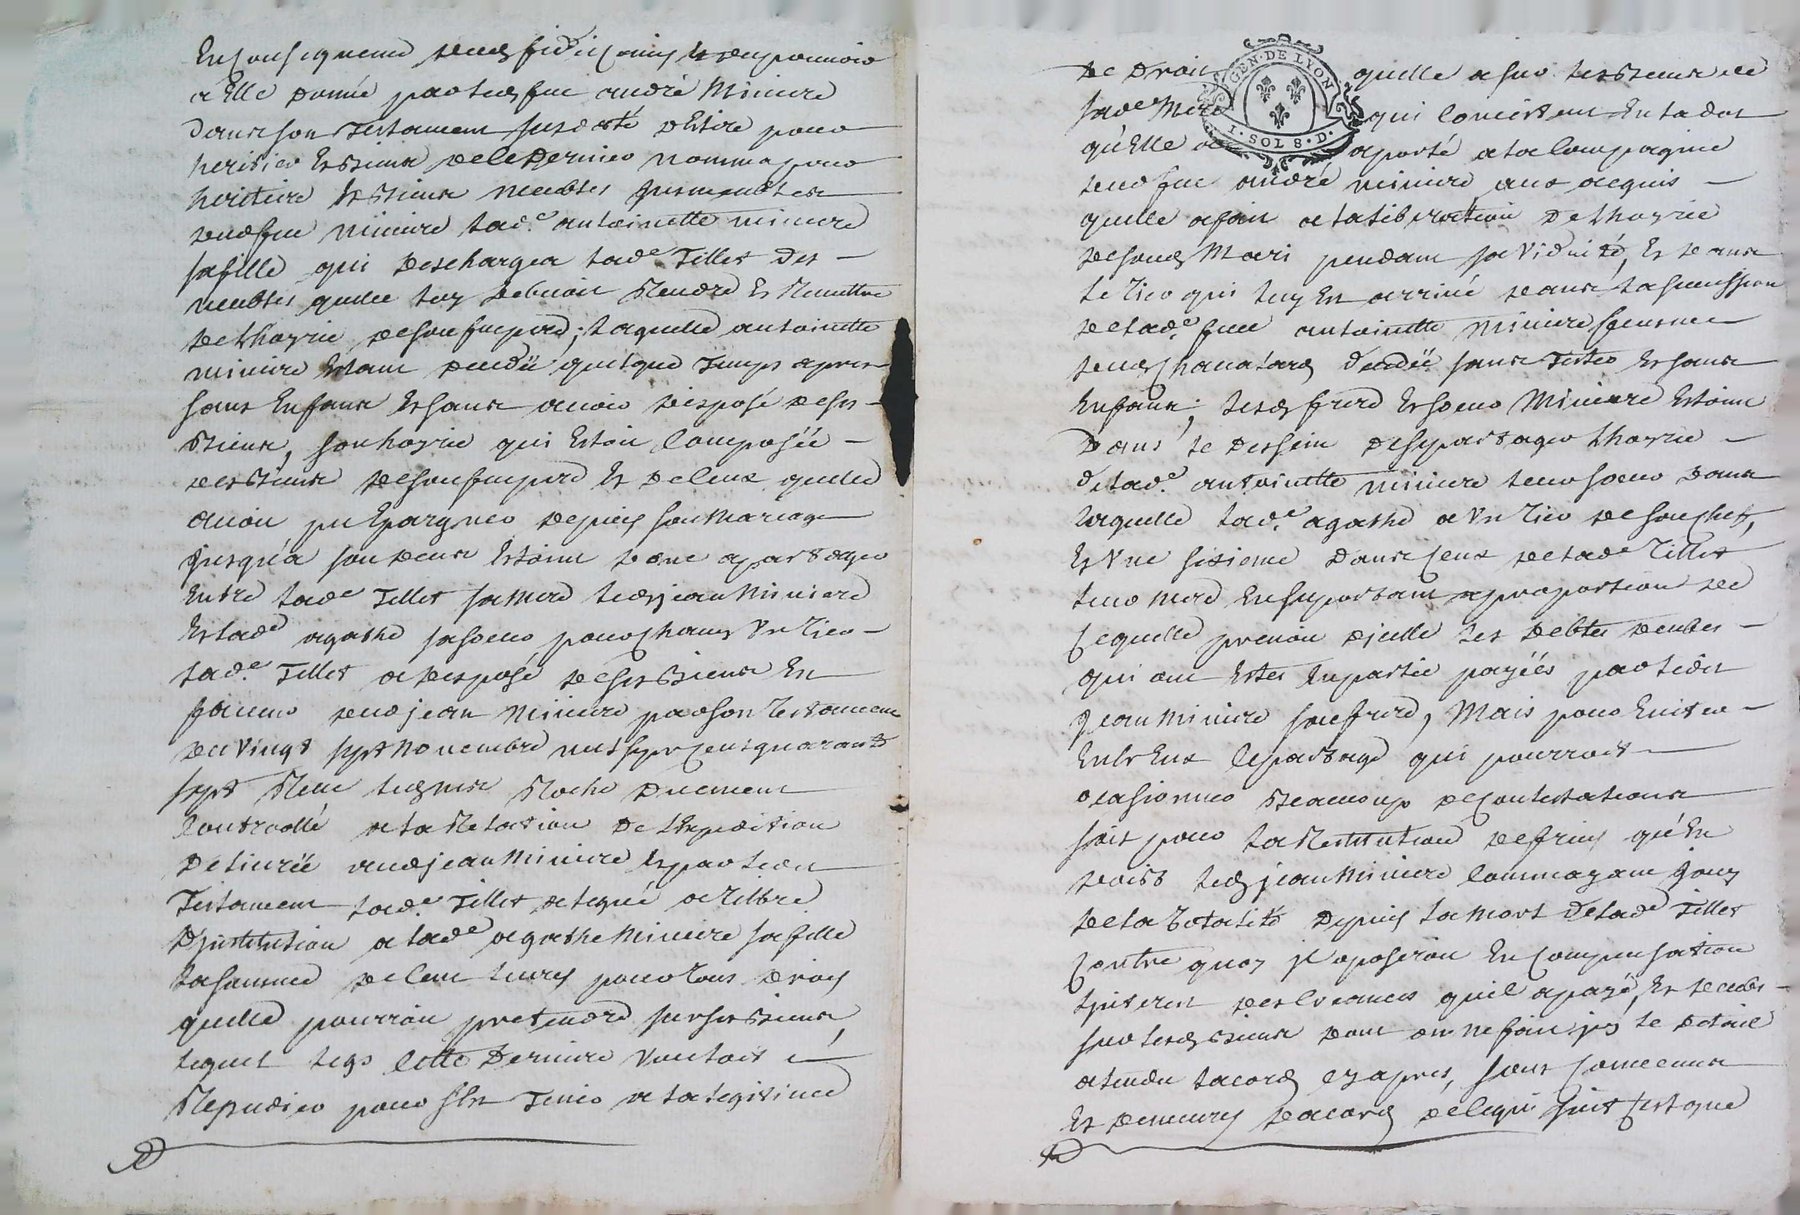 En consequence dud. fideicomis et du pouvoir
a Elle donné par led. feu andré Miniere
dans son Testament susdatté d'Elire pour
heritier Es biens de ce dernier nomma pour
heritiere Es biens meubles Jmmeubles
dud feu miniere lad.e antoinette miniere
sa fille qui deschargea lad.e Tillet des
meubles quelle luy debvoit Rendre Et Remettre
de Lhoyrie de son feu pere; laquelle antoinette
miniere Estant decedée quelque Temps apres
sans Enfans Et sans avoir disposé de ses
Biens, son hoyrie qui Estoit Composée
des Biens de son feu pere Et de Ceux quelle
avoit pu Epargner depuis son mariage
Jusqu'a son deces Estoint donc a partager
Entre lad.e Tillet sa mere led. jean Miniere
Et lad.e agathe sa soeur pour chacun Un Tier
lad.e Tillet a disposé de ses Biens En
faveur dud jean miniere par son Testament
du vingt sept novembre mil sept cens quarante
sept Reçu led. me Roche Duement
Controollé a la Relation de L'Expedition
delivrée aud jean Miniere Et par ledit
Testament lad.e Tillet a legué a Tiltre
D'jnstitution a lad.e agathe Miniere sa fille
la somme de Cent livres pour Tous droits
quelle pourroit pretendre sur ses Biens,
lequel legs Cette derniere Vouloit
Repudier pour s'en Tenir a la legitime
de Droit quelle a sur les Biens de
sad.e Mere qui Consistent En la dot
qu'Elle a aporté a la Compagnie
dud feu andré miniere aux acquis
quelle a fait a la liberation de Lhoyrie
de sond. Mari pendant sa Viduité, Et dans
le Tier qui luy Est arrivé dans la sucession
de lad.e feue antoinette miniere femme
dud. Chanatard decedée sans Tester Et sans
Enfans; lesd. frere Et soeur Miniere Estoint
Dans le dessein de se partager Lhoyrie
de lad.e antoinette miniere leur soeur dans
laquelle lad.e agathe a Un Tier de son chef,
Et Une sixieme dans Ceux de lad.e Tillet
leur mere En suportant a proportion de
Ce quelle prenoit d'jcelle les debtes deubes
qui ont Estes En partie payées par ledit
Jean Miniere son frere, Mais pour Eviter
Entr'Eux le partage qui pourroit
ocasionner Beaucoup de Contestations
soit pour la Restitution de fruits qu'En
doibt led. jean Miniere Comme ayant Jouy
de la Totalité depuis la mort de lad.e Tillet
Contre quoy jl oposeroit En Compensation
L'jnterest des Creances quil a payé, Et deubes
sur lesd. Biens dont on ne fait jcy le detail
atendu lacord cy apres, sont Convenus
Et demeurés dacord de ce qui suit c'est que
GEN · DE LYON
I · SOL 8 · D ·